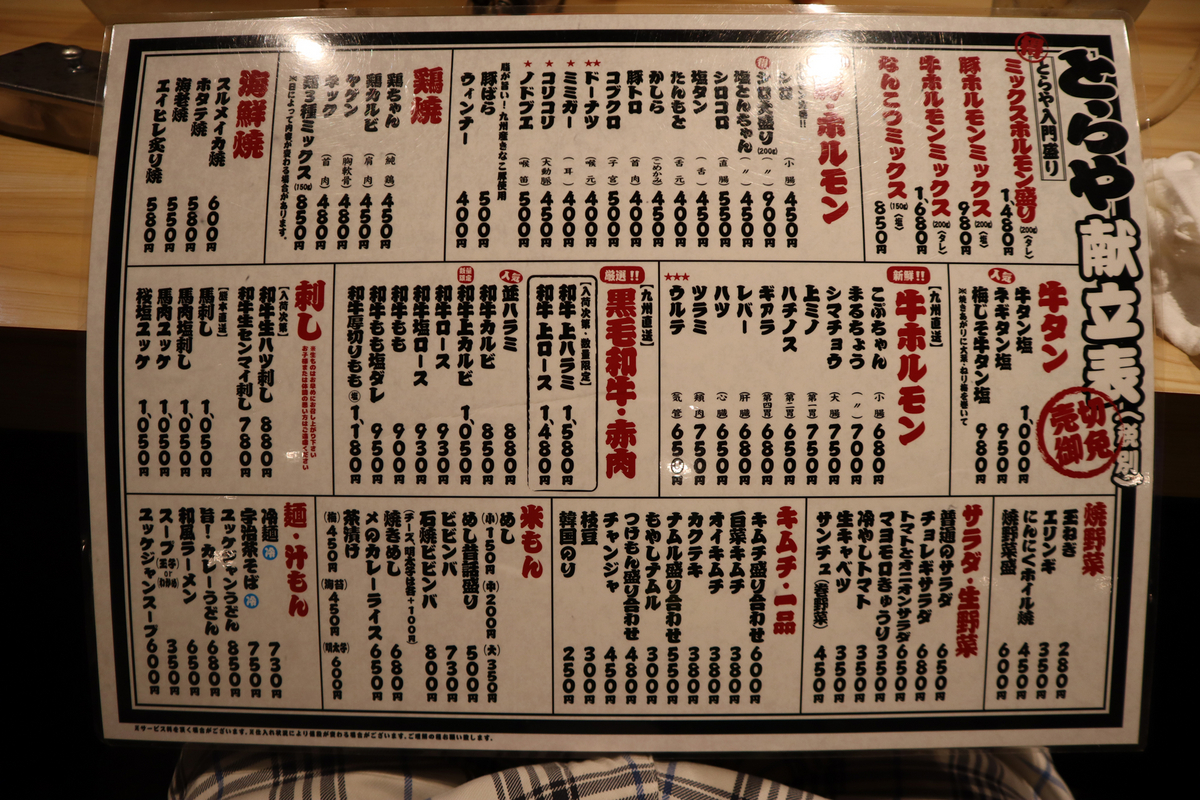 とらや献立表(税別)
売切御免
得
とらや入門盛り
ミックスホルモン盛り(200g)(タレ) 1,480円
豚ホルモンミックス(200g)(塩) 980円
牛ホルモンミックス(200g)(タレ) 1,680円
なんこつミックス(150g)(塩) 850円
ホルモン
シロ(小腸) 450円
シロ大盛り(200g)(〃) 900円
塩とんちゃん(〃) 450円
シロコロ(直腸) 550円
塩タン(舌) 450円
たんもと(舌元) 400円
かしら(こめかみ) 450円
豚トロ(首肉) 450円
コブクロ(子宮) 500円
★★ドーナツ(喉元) 400円
★ミミガー(耳) 400円
★コリコリ(大動脈) 450円
★ノドブエ(喉笛) 500円
脂がまい!九州産きなこ豚使用
豚ばら 500円
ウィンナー 400円
鶏焼
鶏ちゃん(純鶏) 450円
鶏カルビ(肩肉) 450円
ヤゲン(胸軟骨) 480円
ネック(首肉) 480円
鶏3種ミックス(150g) 850円
※日によって内容が変わる場合があります。
海鮮焼
スルメイカ焼 600円
ホタテ焼 580円
海老焼 550円
エイヒレ炙り焼 580円
牛タン
人気
牛タン塩 1,000円
ネギタン塩 950円
梅しそ牛タン塩 980円
※焼きあがりに大葉・ねり梅を巻いて
新鮮!!
【九州直送】
牛ホルモン
こぷちゃん(小腸) 680円
まるちょう(〃) 700円
シマチョウ(大腸) 750円
上ミノ(第一胃) 750円
ハチノス(第二胃) 650円
ギアラ(第四胃) 680円
レバー(肝臓) 680円
ハツ(心臓) 650円
ツラミ(頬肉) 750円
★★★ウルテ(気管) 650円
厳選!!
【九州直送】
黒毛和牛・赤肉
【入荷次第・数量限定】
和牛上ハラミ 1,580円
和牛上ロース 1,480円
人気
並ハラミ 880円
和牛カルビ 850円
和牛上カルビ 1,050円
和牛ロース 930円
和牛塩ロース 930円
和牛もも 900円
和牛もも塩ダレ 950円
和牛厚切りもも(塩) 1,180円
刺し
※生ものはお早めにお召し上がり下さい
【入荷次第】
和牛生ハツ刺し 880円
和牛生センマイ刺し 780円
馬刺し 1,050円
馬肉塩刺し 1,050円
馬肉ユッケ 1,050円
桜塩ユッケ 1,050円
焼野菜
玉ねぎ 280円
エリンギ 350円
にんにくホイル焼 450円
焼野菜盛 600円
サラダ・生野菜
普通のサラダ 650円
チョレギサラダ 680円
トマトとオニオンサラダ 650円
マヨモロきゅうり 350円
冷やしトマト 350円
生キャベツ 350円
サンチュ(巻野菜) 450円
キムチ・一品
キムチ盛り合わせ 600円
白菜キムチ 380円
オイキムチ 380円
カクテキ 380円
ナムル盛り合わせ 550円
もやしナムル 300円
つけもん盛り合わせ 480円
チャンジャ 450円
枝豆 300円
韓国のり 250円
米もん
めし (小)150円 (中)200円 (大)350円
めし昔話盛り 500円
ビビンバ 730円
石焼ビビンバ 800円
(チーズ、明太子は各+100円)
焼きめし 680円
〆のカレーライス 650円
茶漬け
(梅)450円 (海苔)450円 (明太子)600円
麺・汁もん
冷麺 冷 730円
宇治茶そば 冷 750円
ユッケジャンうどん 850円
旨!カレーうどん 680円
和風ラーメン 650円
スープ(玉子orわかめ) 350円
ユッケジャンスープ 600円
※サービス料を頂く場合がございます。※仕入れ状況により価格が変わる場合がございます。ご理解の程お願い致します。